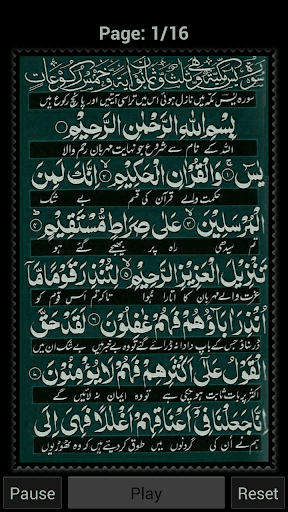 Page: 1/16
سورہ یٰسٓ مکہ میں نازل ہوئی اس میں تراسی آیتیں اور پانچ رکوع ہیں
بِسْمِ اللّٰهِ الرَّحْمٰنِ الرَّحِیْمِ
اللہ کے نام سے شروع جو نہایت مہربان رحم والا
یٰسٓ ۚ﴿۱﴾ وَالْقُرْاٰنِ الْحَكِیْمِ ۙ﴿۲﴾ اِنَّكَ لَمِنَ
حکمت والے قرآن کی قسم بے شک
الْمُرْسَلِیْنَ ۙ﴿۳﴾ عَلٰی صِرَاطٍ مُّسْتَقِیْمٍ ؕ﴿۴﴾
تم سیدھی راہ پر بھیجے گئے ہو
تَنْزِیْلَ الْعَزِیْزِ الرَّحِیْمِ ۙ﴿۵﴾ لِتُنْذِرَ قَوْمًا مَّاۤ
عزت والے مہربان کا اتارا ہوا تاکہ تم اس قوم کو
اُنْذِرَ اٰبَآؤُهُمْ فَهُمْ غٰفِلُوْنَ ﴿۶﴾ لَقَدْ حَقَّ
ڈر سناؤ جس کے باپ دادا نہ ڈرائے گئے تو وہ بے خبر ہیں بے شک ان میں
الْقَوْلُ عَلٰۤی اَكْثَرِهِمْ فَهُمْ لَا یُؤْمِنُوْنَ ﴿۷﴾
اکثر پر بات ثابت ہو چکی ہے تو وہ ایمان نہ لائیں گے
اِنَّا جَعَلْنَا فِیْۤ اَعْنَاقِهِمْ اَغْلٰلًا فَهِیَ اِلَی
ہم نے ان کی گردنوں میں طوق کر دیئے ہیں کہ وہ ٹھوڑیوں
Pause
Play
Reset